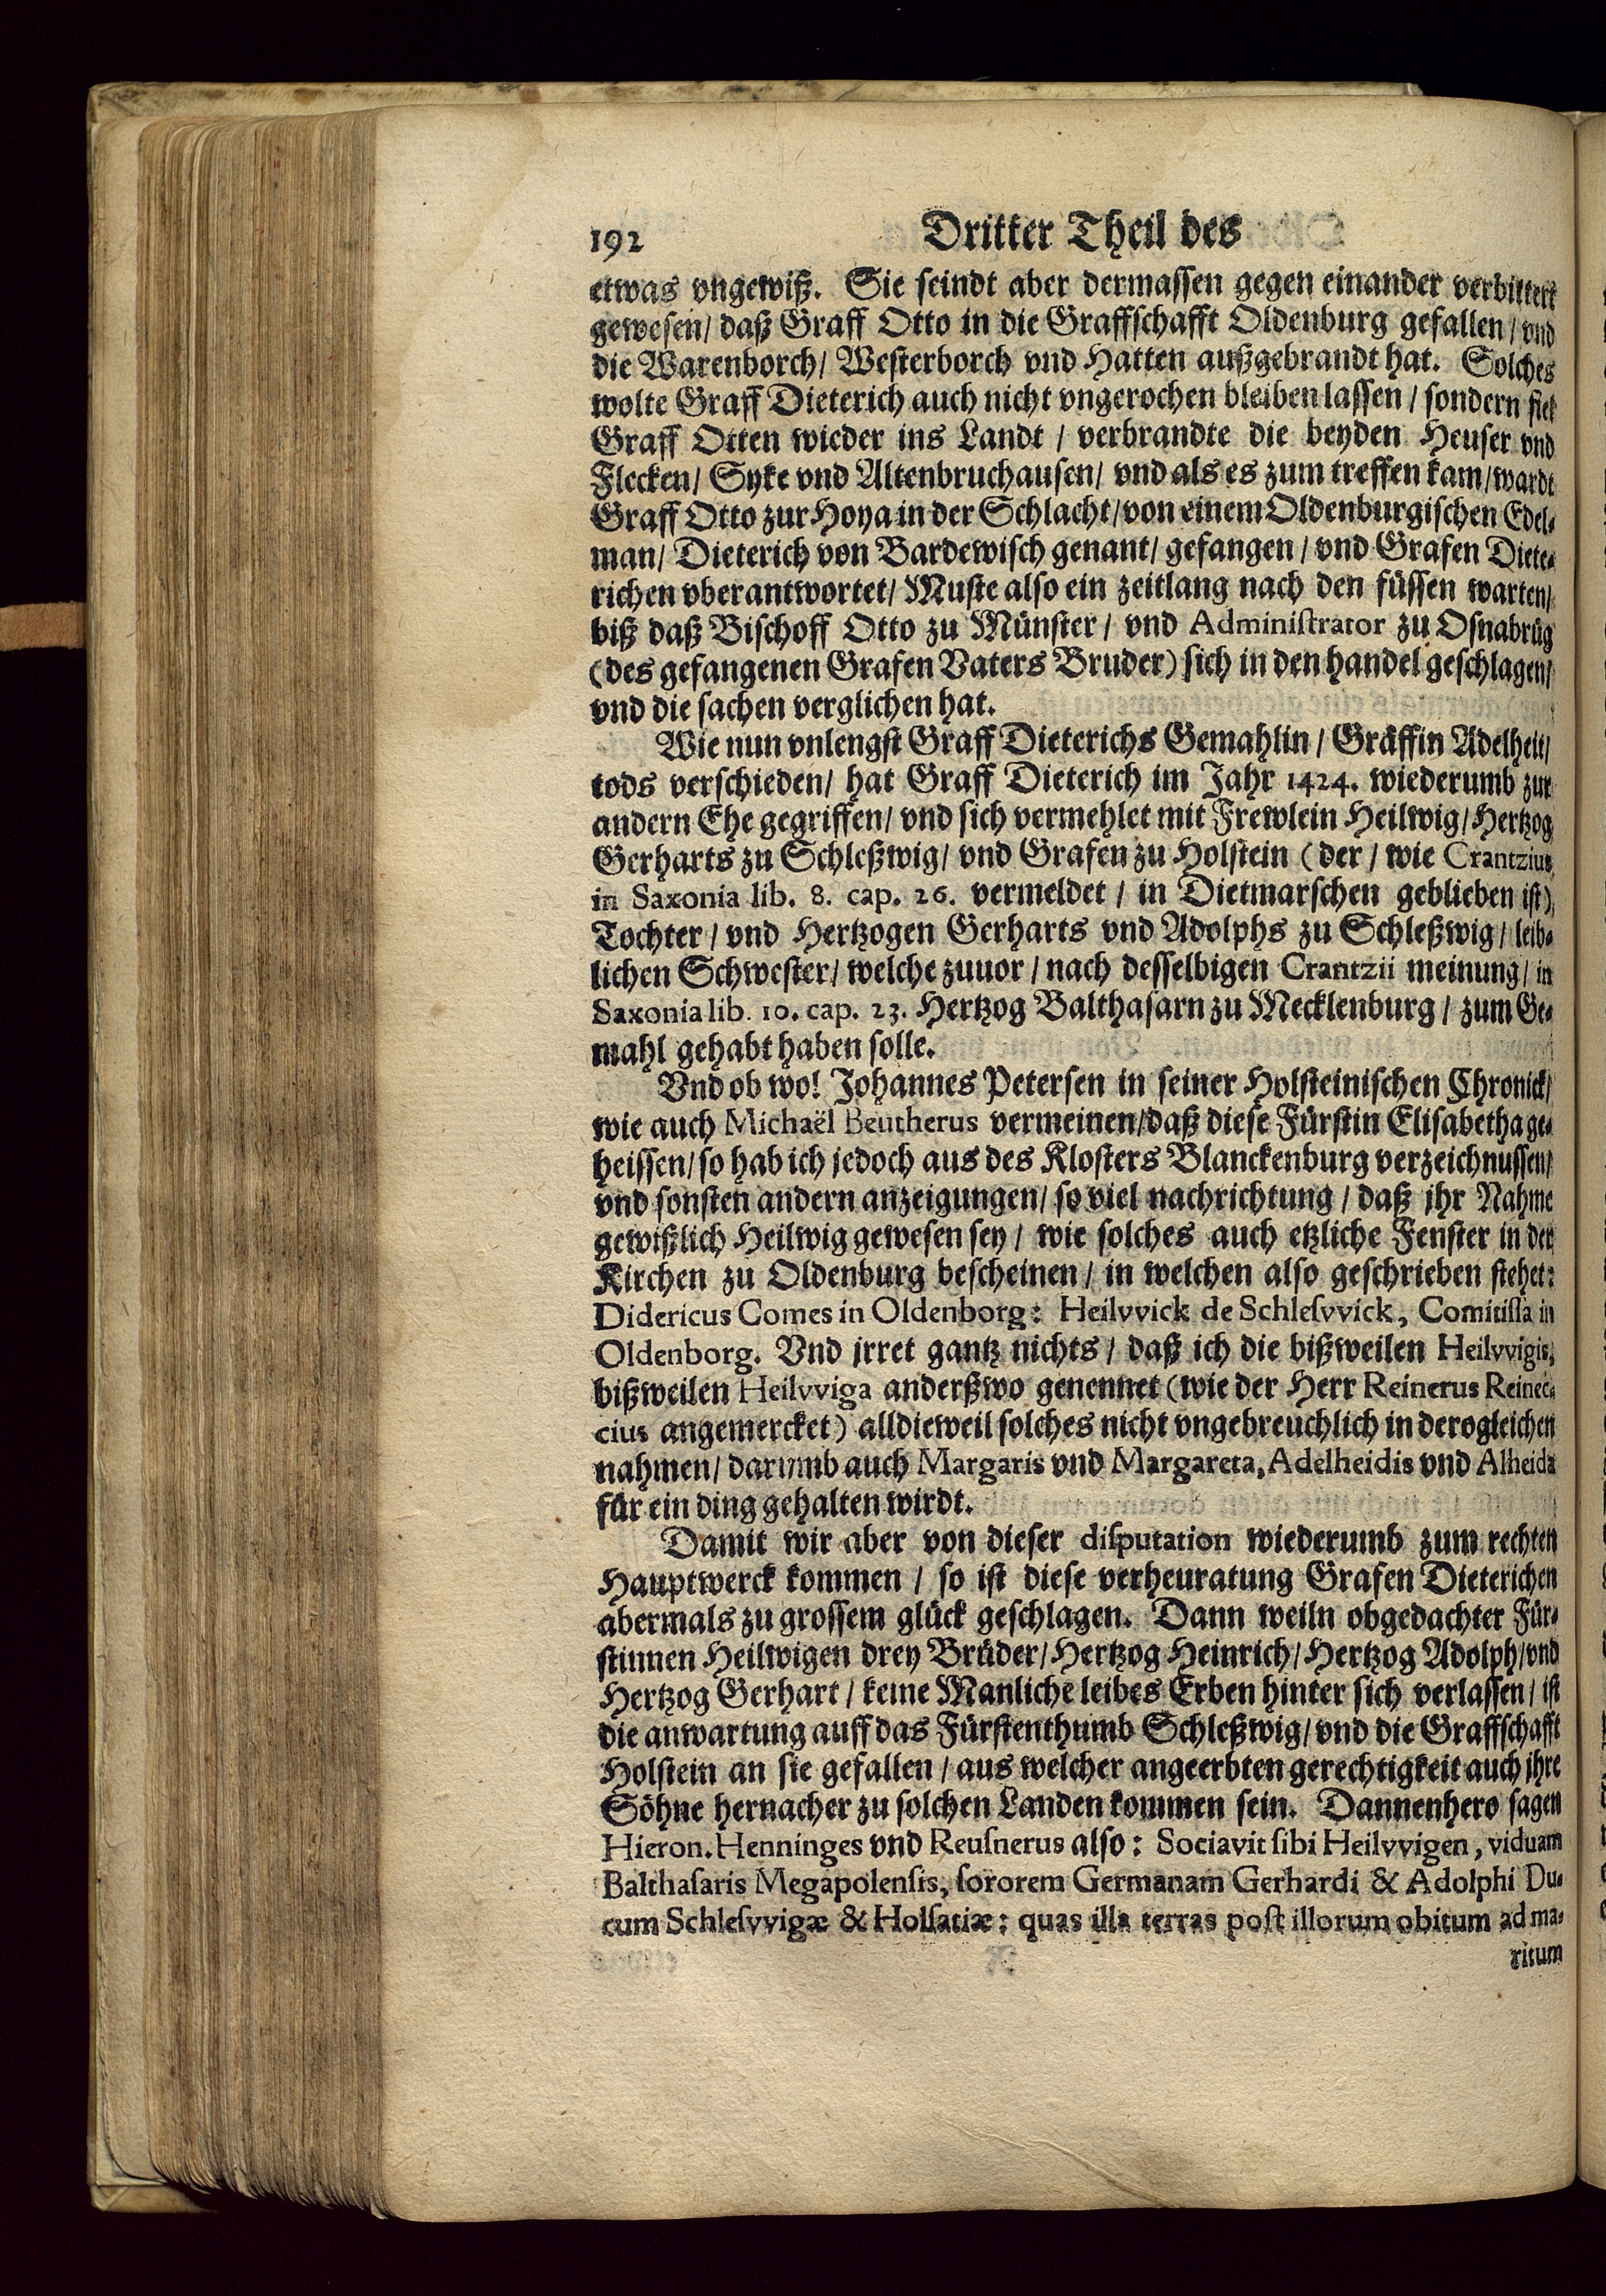 192 Dritter Theil des
etwas vngewiß. Sie seindt aber dermassen gegen einander verbittert
gewesen/ daß Graff Otto in die Graffschafft Oldenburg gefallen/ vnd
die Warenborch/ Westerborch vnd Hatten außgebrandt hat. Solches
wolte Graff Dieterich auch nicht vngerochen bleiben lassen/ sondern fiel
Graff Otten wieder ins Landt / verbrandte die beyden Heuser vnd
Flecken/ Syke vnd Altenbruchausen/ vnd als es zum treffen kam/ wardt
Graff Otto zur Hoya in der Schlacht/ von einem Oldenburgischen Edel-
man/ Dieterich von Bardewisch genant/ gefangen/ vnd Grafen Diete-
richen vberantwortet/ Muste also ein zeitlang nach den füssen warten/
biß daß Bischoff Otto zu Münster/ vnd Administrator zu Osnabrüg
(des gefangenen Grafen Vaters Bruder) sich in den handel geschlagen/
vnd die sachen verglichen hat.
Wie nun vnlengst Graff Dieterichs Gemahlin/ Gräffin Adelheit/
tods verschieden/ hat Graff Dieterich im Jahr 1424. wiederumb zur
andern Ehe gegriffen/ vnd sich vermehlet mit Frewlein Heilwig/ Hertzog
Gerharts zu Schleßwig/ vnd Grafen zu Holstein (der/ wie Crantzius
in Saxonia lib. 8. cap. 26. vermeldet/ in Dietmarschen geblieben ist)
Tochter/ vnd Hertzogen Gerharts vnd Adolphs zu Schleßwig/ leib-
lichen Schwester/ welche zuuor/ nach desselbigen Crantzii meinung/ in
Saxonia lib. 10. cap. 23. Hertzog Balthasarn zu Mecklenburg/ zum Ge-
mahl gehabt haben solle.
Vnd ob wol Johannes Petersen in seiner Holsteinischen Chronick/
wie auch Michaël Beutherus vermeinen/ daß diese Fürstin Elisabetha ge-
heissen/ so hab ich jedoch aus des Klosters Blanckenburg verzeichnussen/
vnd sonsten andern anzeigungen/ so viel nachrichtung/ daß jhr Nahme
gewißlich Heilwig gewesen sey/ wie solches auch etzliche Fenster in der
Kirchen zu Oldenburg bescheinen/ in welchen also geschrieben stehet:
Didericus Comes in Oldenborg: Heilvvick de Schlesvvick, Comitissa in
Oldenborg. Vnd jrret gantz nichts/ daß ich die bißweilen Heilvvigis,
bißweilen Heilvviga anderßwo genennet (wie der Herr Reinerus Reinec-
cius angemercket) alldieweil solches nicht vngebreuchlich in derogleichen
nahmen/ darumb auch Margaris vnd Margareta, Adelheidis vnd Alheida
für ein ding gehalten wirdt.
Damit wir aber von dieser disputation wiederumb zum rechten
Hauptwerck kommen/ so ist diese verheuratung Grafen Dieterichen
abermals zu grossem glück geschlagen. Dann weiln obgedachter Für-
stinnen Heilwigen drey Brüder/ Hertzog Heinrich/ Hertzog Adolph/ vnd
Hertzog Gerhart/ keine Manliche leibes Erben hinter sich verlassen/ ist
die anwartung auff das Fürstenthumb Schleßwig/ vnd die Graffschafft
Holstein an sie gefallen/ aus welcher angeerbten gerechtigkeit auch ihre
Söhne hernacher zu solchen Landen kommen sein. Dannenhero sagen
Hieron. Henninges vnd Reusnerus also: Sociavit sibi Heilvvigen, viduam
Balthasaris Megapolensis, sororem Germanam Gerhardi & Adolphi Du-
cum Schlesvvigæ & Holsatiæ: quas illa terras post illorum obitum ad ma-
ritum